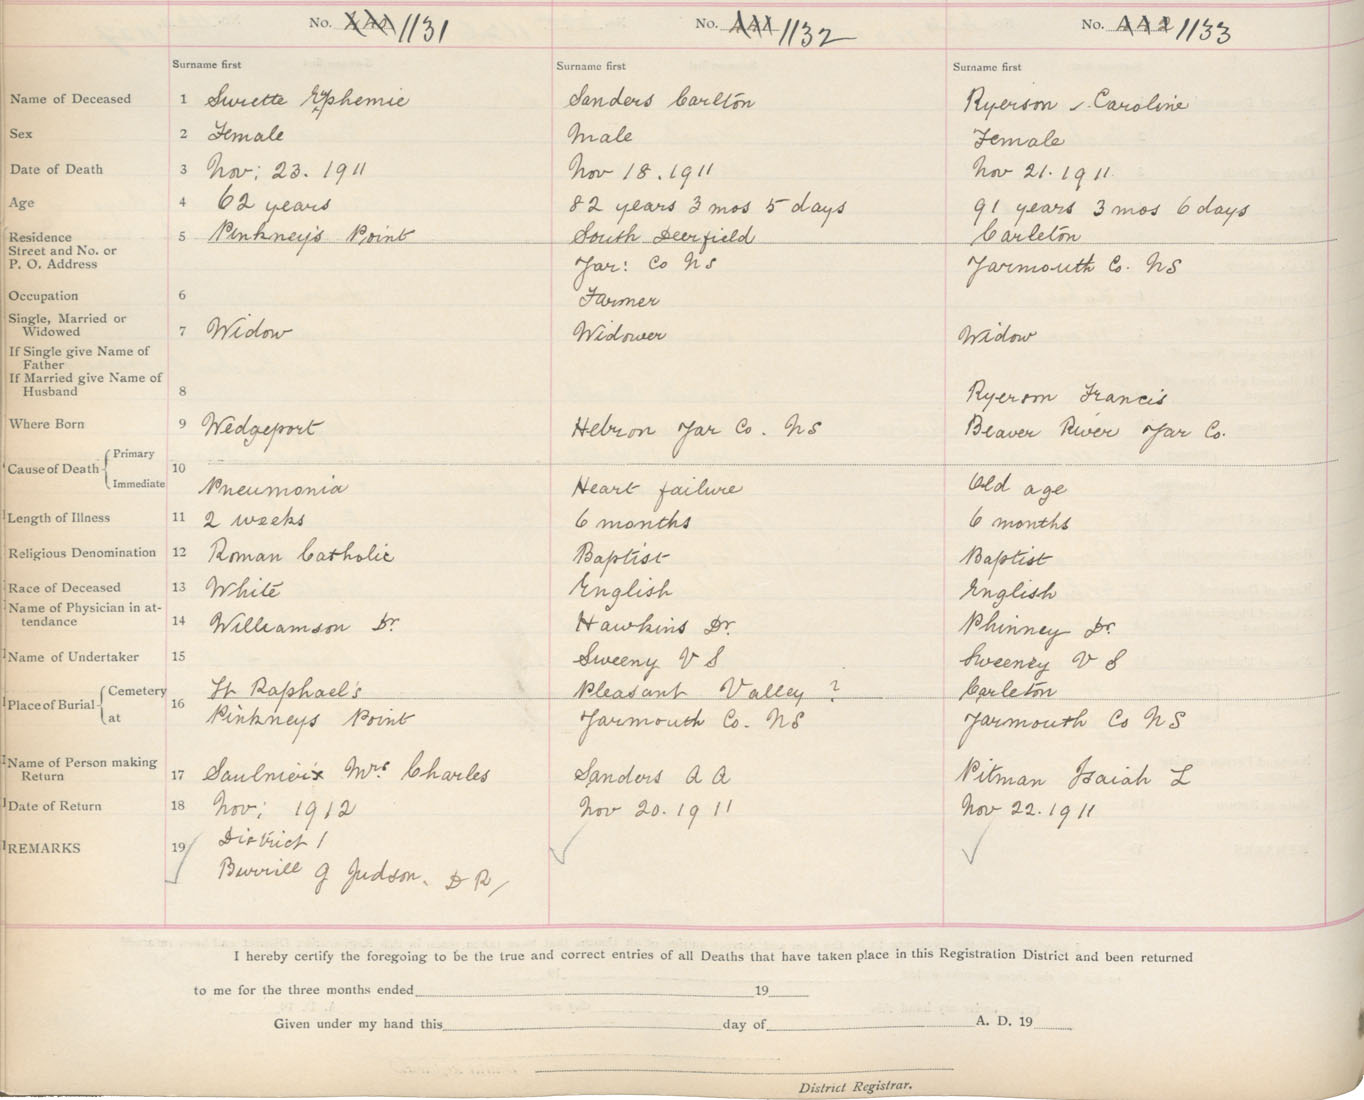 No. 1131 No. 1132 No. 1133
Surname first Surname first Surname first
Name of Deceased 1 Surette Ephemie Sanders Carlton Ryerson Caroline
Sex 2 Female Male Female
Date of Death 3 Nov; 23. 1911 Nov 18. 1911 Nov 21. 1911
Age 4 62 years 82 years 3 mos 5 days 91 years 3 mos 6 days
Residence 5 Pinkney's Point South Deerfield Carleton
Street and No. or
P. O. Address Yar: Co NS Yarmouth Co. NS
Occupation 6 Farmer
Single, Married or
Widowed 7 Widow Widower Widow
If Single give Name of
Father
If Married give Name of
Husband 8 Ryerson Francis
Where Born 9 Wedgeport Hebron Yar Co. NS Beaver River Yar Co.
Cause of Death Primary 10
Immediate Pneumonia Heart failure Old age
Length of Illness 11 2 weeks 6 months 6 months
Religious Denomination 12 Roman Catholic Baptist Baptist
Race of Deceased 13 White English English
Name of Physician in at-
tendance 14 Williamson Dr. Hawkins Dr. Phinney Dr.
Name of Undertaker 15 Sweeny V S Sweeney V S
Place of Burial Cemetery 16 St Raphael's Pleasant Valley ? Carleton
at Pinkneys Point Yarmouth Co. NS Yarmouth Co NS
Name of Person making
Return 17 Saulnier Mrs Charles Sanders A A Pitman Isaiah L
Date of Return 18 Nov; 1912 Nov 20. 1911 Nov 22. 1911
REMARKS 19 District 1
Burrill G Judson. D R
I hereby certify the foregoing to be the true and correct entries of all Deaths that have taken place in this Registration District and been returned
to me for the three months ended 19
Given under my hand this day of A. D. 19
District Registrar.